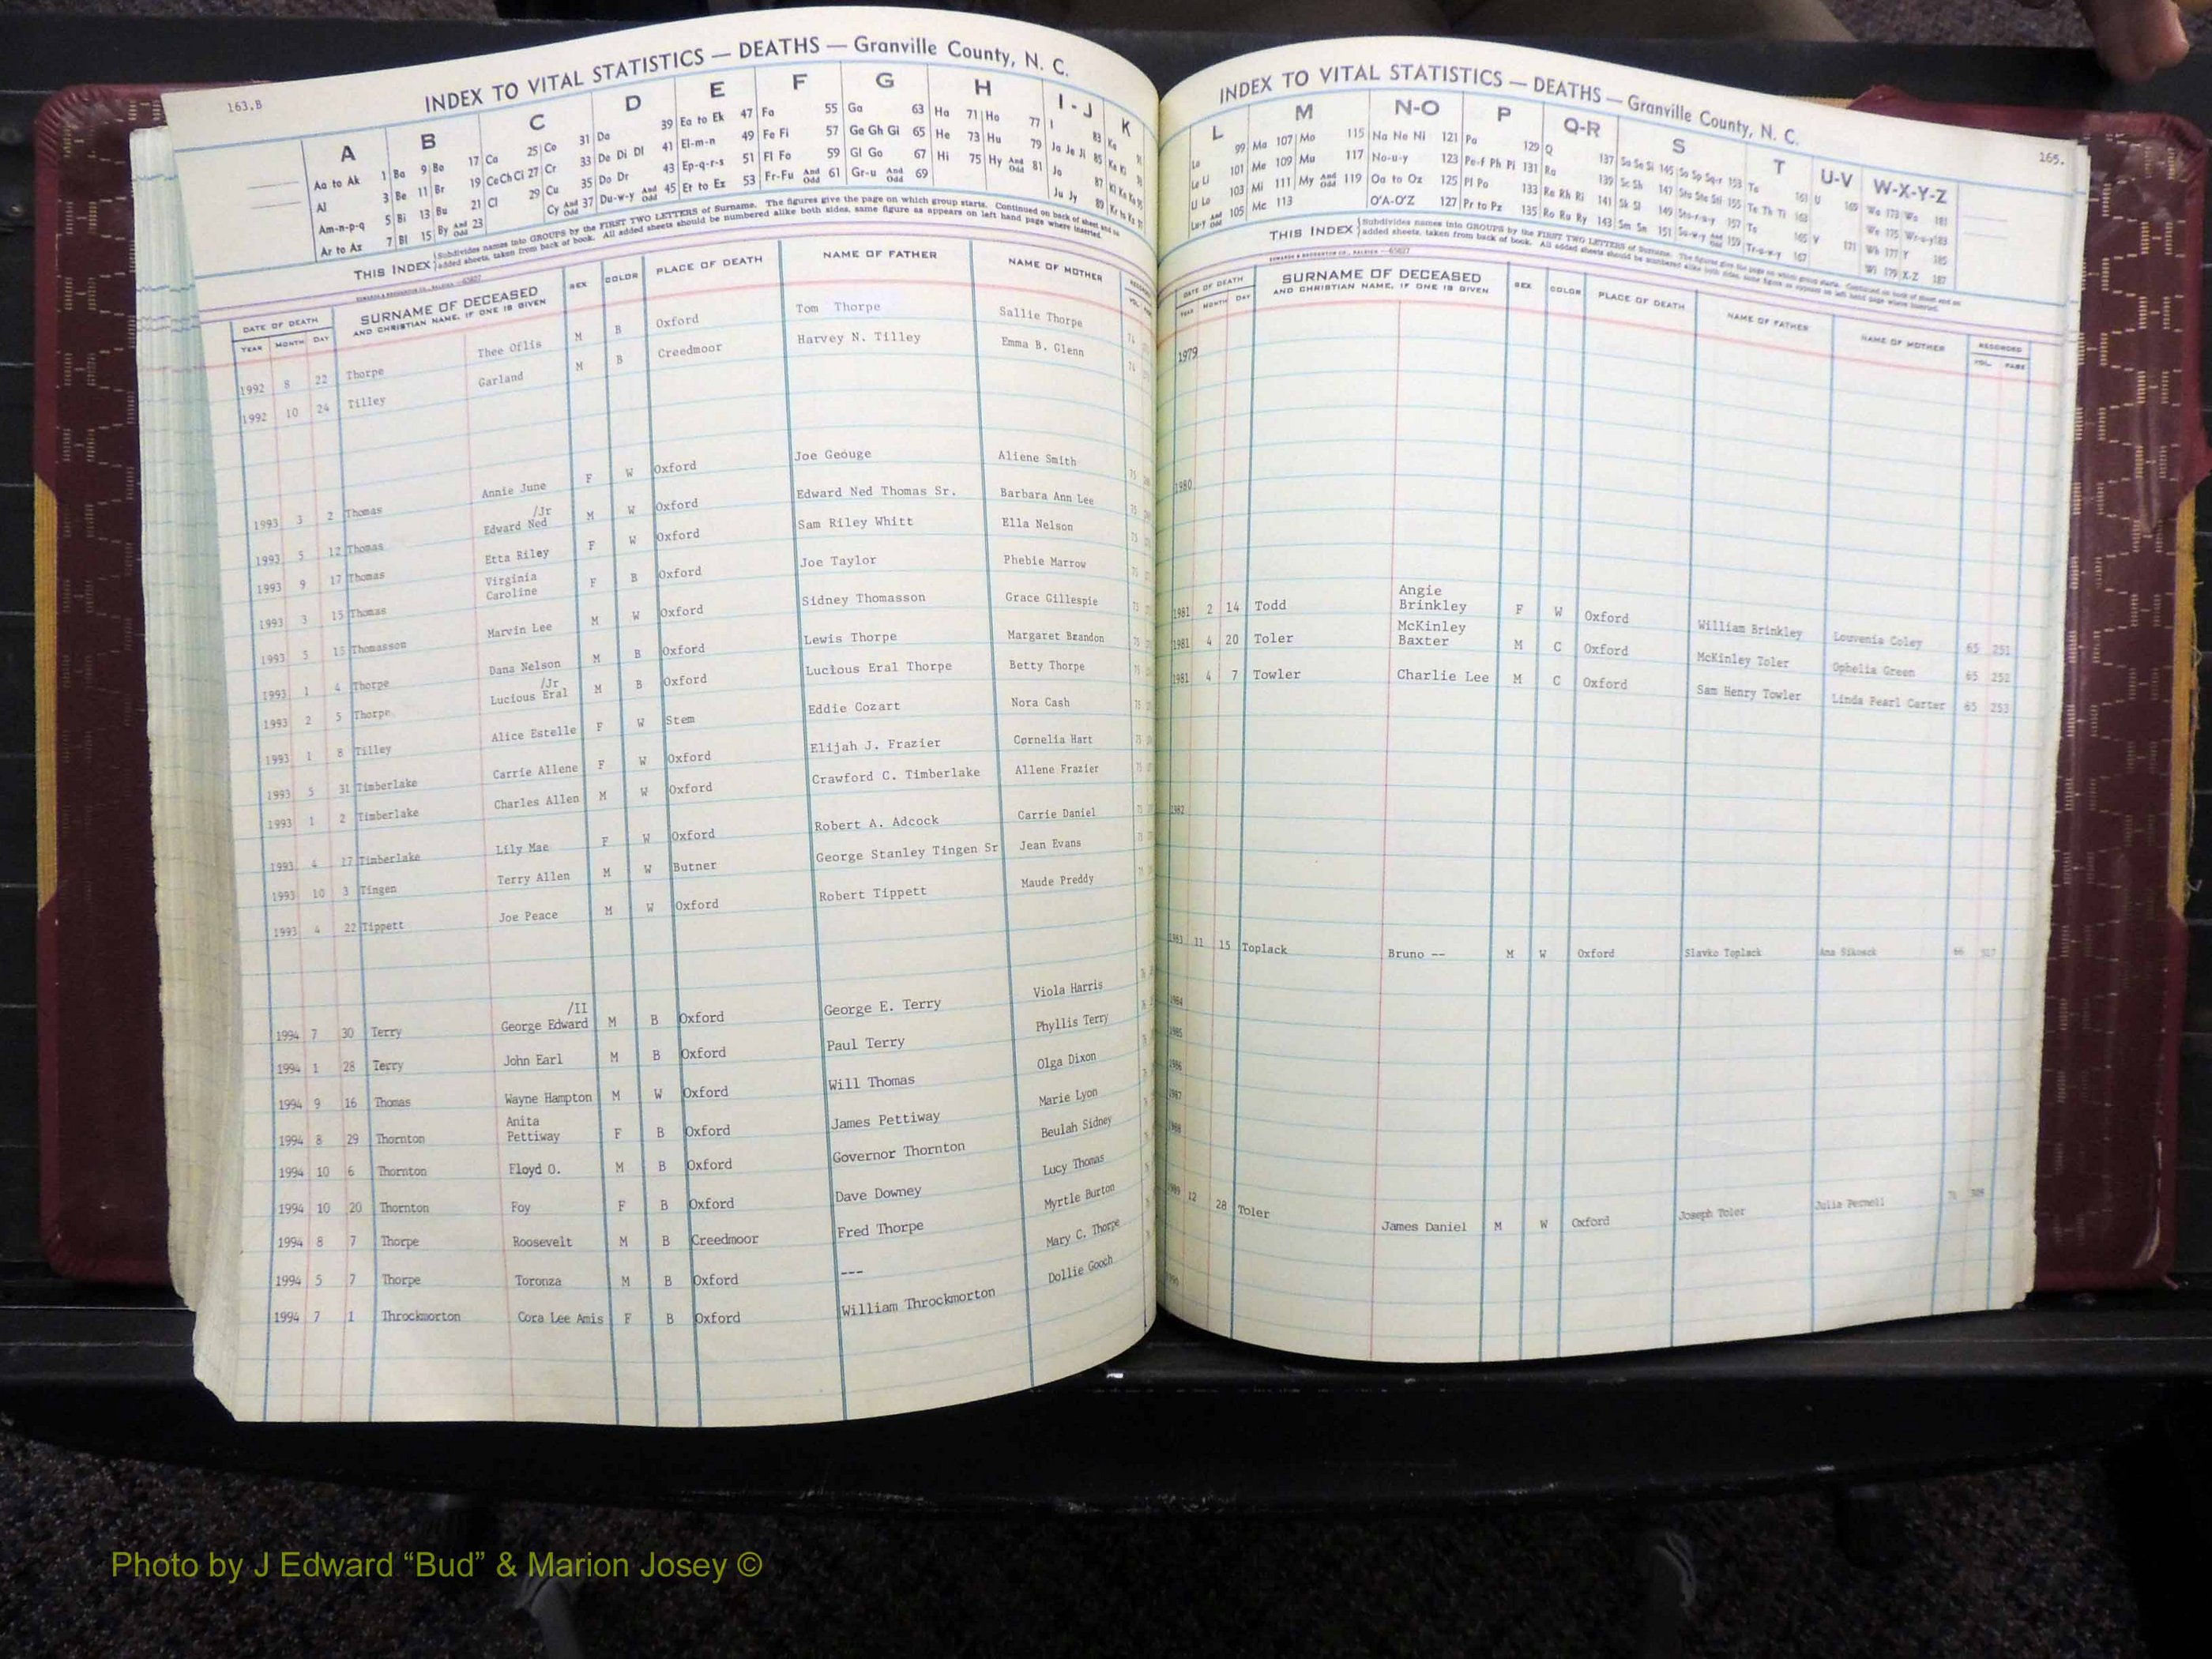 163.B
INDEX TO VITAL STATISTICS — DEATHS — Granville County, N. C.
A B C D E F G H I - J K
Aa to Ak 1 Ba 9 Bo 17 Ca 25 Co 31 Da 39 Ea to Ek 47 Fa 55 Ga 63 Ha 71 Ho 77 I 83 Ka
Al 3 Be 11 Br 19 Ce Ch Ci 27 Cr 33 De Di Dl 41 El-m-n 49 Fe Fi 57 Ge Gh Gi 65 He 73 Hu 79 Ja Je Ji 85 Ke Ki
Am-n-p-q 5 Bi 13 Bu 21 Cl 29 Cu 35 Do Dr 43 Ep-q-r-s 51 Fl Fo 59 Gl Go 67 Hi 75 Hy And Odd 81 Jo 87
Ar to Az 7 Bl 15 By And Odd 23 Cy And Odd 37 Du-w-y And Odd 45 Et to Ez 53 Fr-Fu And Odd 61 Gr-u And Odd 69 Ju Jy 89
THIS INDEX Subdivides names into GROUPS by the FIRST TWO LETTERS of Surname. The figures give the page on which group starts. Continued on back of sheet and on
added sheets, taken from back of book. All added sheets should be numbered alike both sides, same figure as appears on left hand page where inserted.
DATE OF DEATH SURNAME OF DECEASED SEX COLOR PLACE OF DEATH NAME OF FATHER NAME OF MOTHER
YEAR MONTH DAY AND CHRISTIAN NAME, IF ONE IS GIVEN
1992 8 22 Thorpe Thee Oflis M B Oxford Tom Thorpe Sallie Thorpe
1992 10 24 Tilley Garland M B Creedmoor Harvey N. Tilley Emma B. Glenn
1993 3 2 Thomas Annie June F W Oxford Joe Geouge Aliene Smith
/Jr
1993 5 12 Thomas Edward Ned M W Oxford Edward Ned Thomas Sr. Barbara Ann Lee
1993 9 17 Thomas Etta Riley F W Oxford Sam Riley Whitt Ella Nelson
Virginia
1993 3 15 Thomas Caroline F B Oxford Joe Taylor Phebie Marrow
1993 5 15 Thomasson Marvin Lee M W Oxford Sidney Thomasson Grace Gillespie
1993 1 4 Thorpe Dana Nelson M B Oxford Lewis Thorpe Margaret Brandon
/Jr
1993 2 5 Thorpe Lucious Eral M B Oxford Lucious Eral Thorpe Betty Thorpe
1993 1 8 Tilley Alice Estelle F W Stem Eddie Cozart Nora Cash
1993 5 31 Timberlake Carrie Allene F W Oxford Elijah J. Frazier Cornelia Hart
1993 1 2 Timberlake Charles Allen M W Oxford Crawford C. Timberlake Allene Frazier
1993 4 17 Timberlake Lily Mae F W Oxford Robert A. Adcock Carrie Daniel
1993 10 3 Tingen Terry Allen M W Butner George Stanley Tingen Sr Jean Evans
1993 4 22 Tippett Joe Peace M W Oxford Robert Tippett Maude Preddy
/II
1994 7 30 Terry George Edward M B Oxford George E. Terry Viola Harris
1994 1 28 Terry John Earl M B Oxford Paul Terry Phyllis Terry
1994 9 16 Thomas Wayne Hampton M W Oxford Will Thomas Olga Dixon
Anita
1994 8 29 Thornton Pettiway F B Oxford James Pettiway Marie Lyon
1994 10 6 Thornton Floyd O. M B Oxford Governor Thornton Beulah Sidney
1994 10 20 Thornton Foy F B Oxford Dave Downey Lucy Thomas
1994 8 7 Thorpe Roosevelt M B Creedmoor Fred Thorpe Myrtle Burton
1994 5 7 Thorpe Toronza M B Oxford --- Mary C. Thorpe
1994 7 1 Throckmorton Cora Lee Amis F B Oxford William Throckmorton Dollie Gooch
165.
INDEX TO VITAL STATISTICS — DEATHS — Granville County, N. C.
L M N-O P Q-R S T U-V W-X-Y-Z
La 99 Ma 107 Mo 115 Na Ne Ni 121 Pa 129 Q 137 Sa Se Si 145 So Sp Sq-r 153 Ta 161 U 169 Wa 173 Wo 181
Le Li 101 Me 109 Mu 117 No-u-y 123 Pe-f Ph Pi 131 Ra 139 Sc Sh 147 Sta Ste Sti 155 Te Th Ti 163 We 175 Wr-u-y 183
Ll Lo 103 Mi 111 My And Odd 119 Oa to Oz 125 Pl Po 133 Re Rh Ri 141 Sk Sl 149 Sto-r-u-y 157 To 165 V 171 Wh 177 Y 185
Lu-y And Odd 105 Mc 113 O'A-O'Z 127 Pr to Pz 135 Ro Ru Ry 143 Sm Sn 151 Su-w-y And Odd 159 Tr-u-w-y 167 Wi 179 X-Z 187
THIS INDEX Subdivides names into GROUPS by the FIRST TWO LETTERS of Surname. The figures give the page on which group starts. Continued on back of sheet and on
added sheets, taken from back of book. All added sheets should be numbered alike both sides, same figure as appears on left hand page where inserted.
DATE OF DEATH SURNAME OF DECEASED SEX COLOR PLACE OF DEATH NAME OF FATHER NAME OF MOTHER RECORDED
YEAR MONTH DAY AND CHRISTIAN NAME, IF ONE IS GIVEN VOL. PAGE
1979
1980
Angie
1981 2 14 Todd Brinkley F W Oxford William Brinkley Louvenia Coley 65 251
McKinley
1981 4 20 Toler Baxter M C Oxford McKinley Toler Ophelia Green 65 252
1981 4 7 Towler Charlie Lee M C Oxford Sam Henry Towler Linda Pearl Carter 65 253
1982
1983 11 15 Toplack Bruno -- M W Oxford Slavko Toplack
1984
1985
1986
1987
1988
1989 12 28 Toler James Daniel M W Oxford Joseph Toler Julia Pernell
1990
Photo by J Edward “Bud” & Marion Josey ©